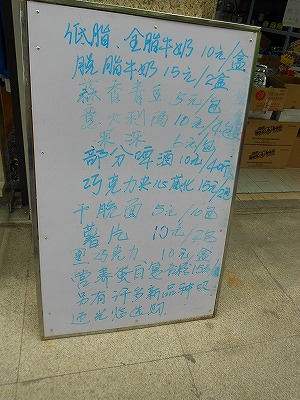 低脂 全脂牛奶 10元/盒
脱脂牛奶 15元/2盒
蒜香青豆 5元/包
意大利面 10元/4包
果冻 5元/包
部分啤酒 10元/4听
巧克力 威化 15元/2包
干脆面 5元/10包
薯片 10元/2包
黑巧克力 10元/盒
营养蛋白 15元
另有许多新品种
迎光临选购